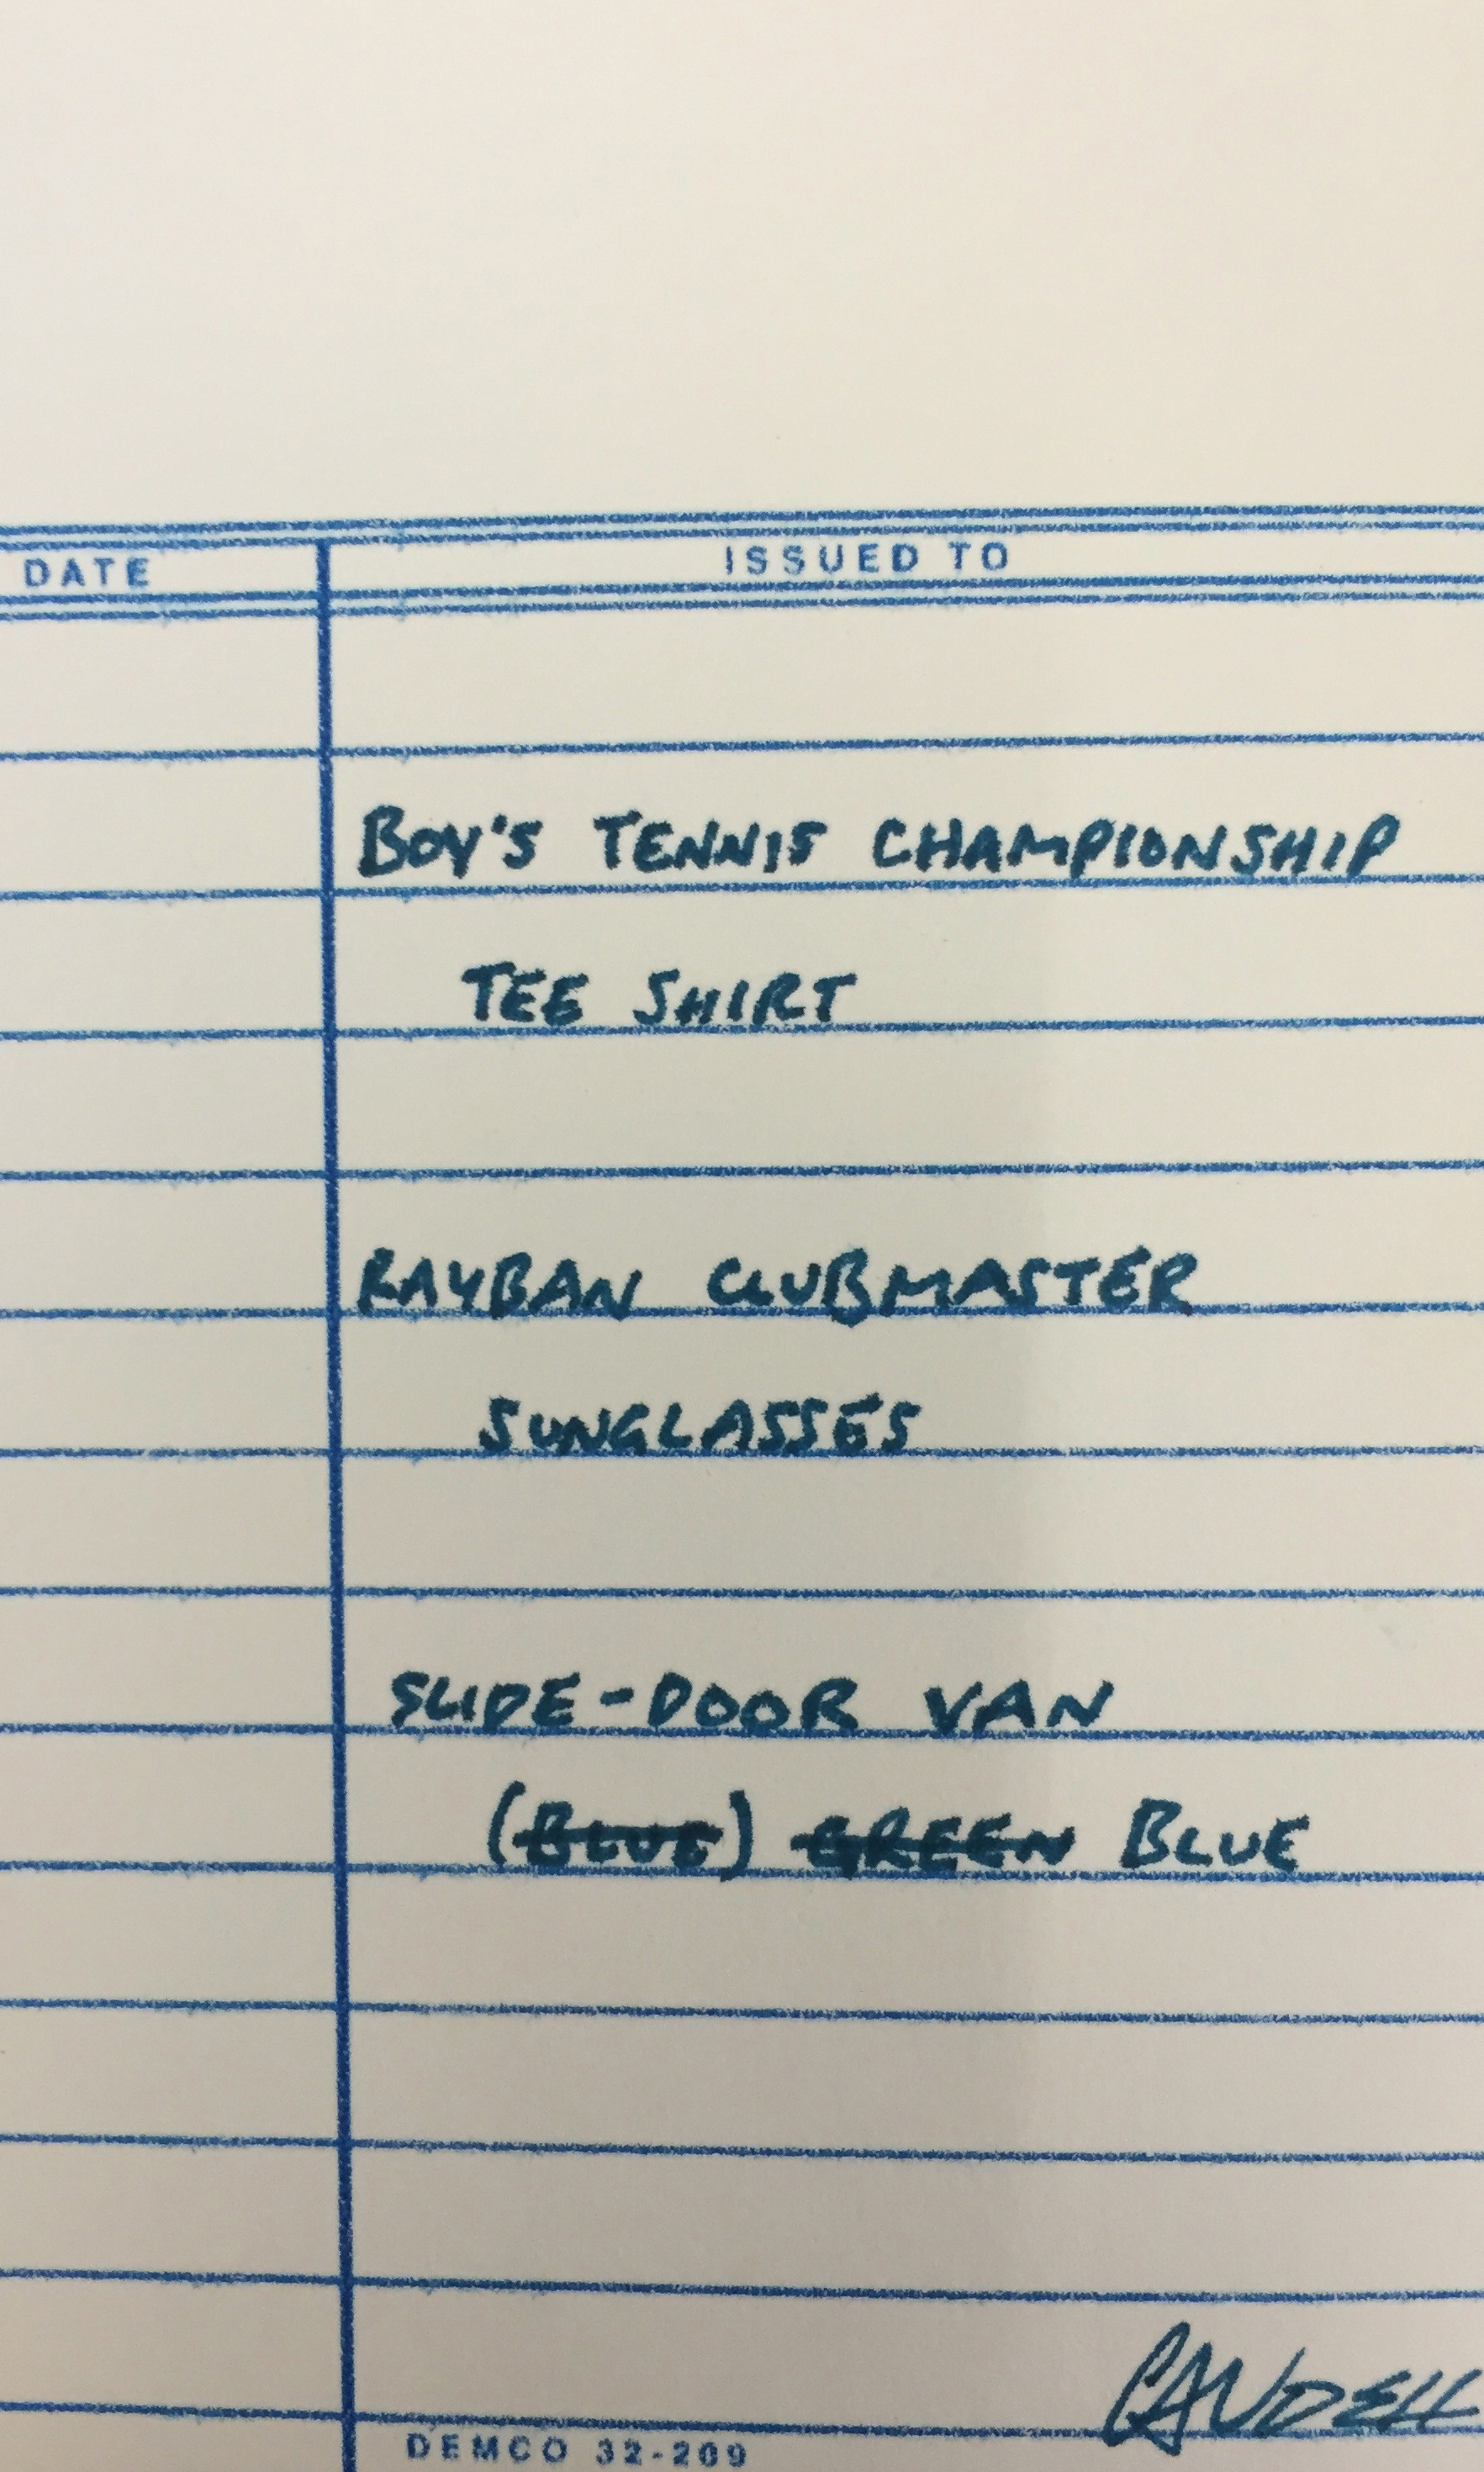 DATE ISSUED TO
BOY'S TENNIS CHAMPIONSHIP
TEE SHIRT
RAYBAN CLUBMASTER
SUNGLASSES
SLIDE-DOOR VAN
(BLUE) GREEN BLUE
CAUDELL
DEMCO 32-209